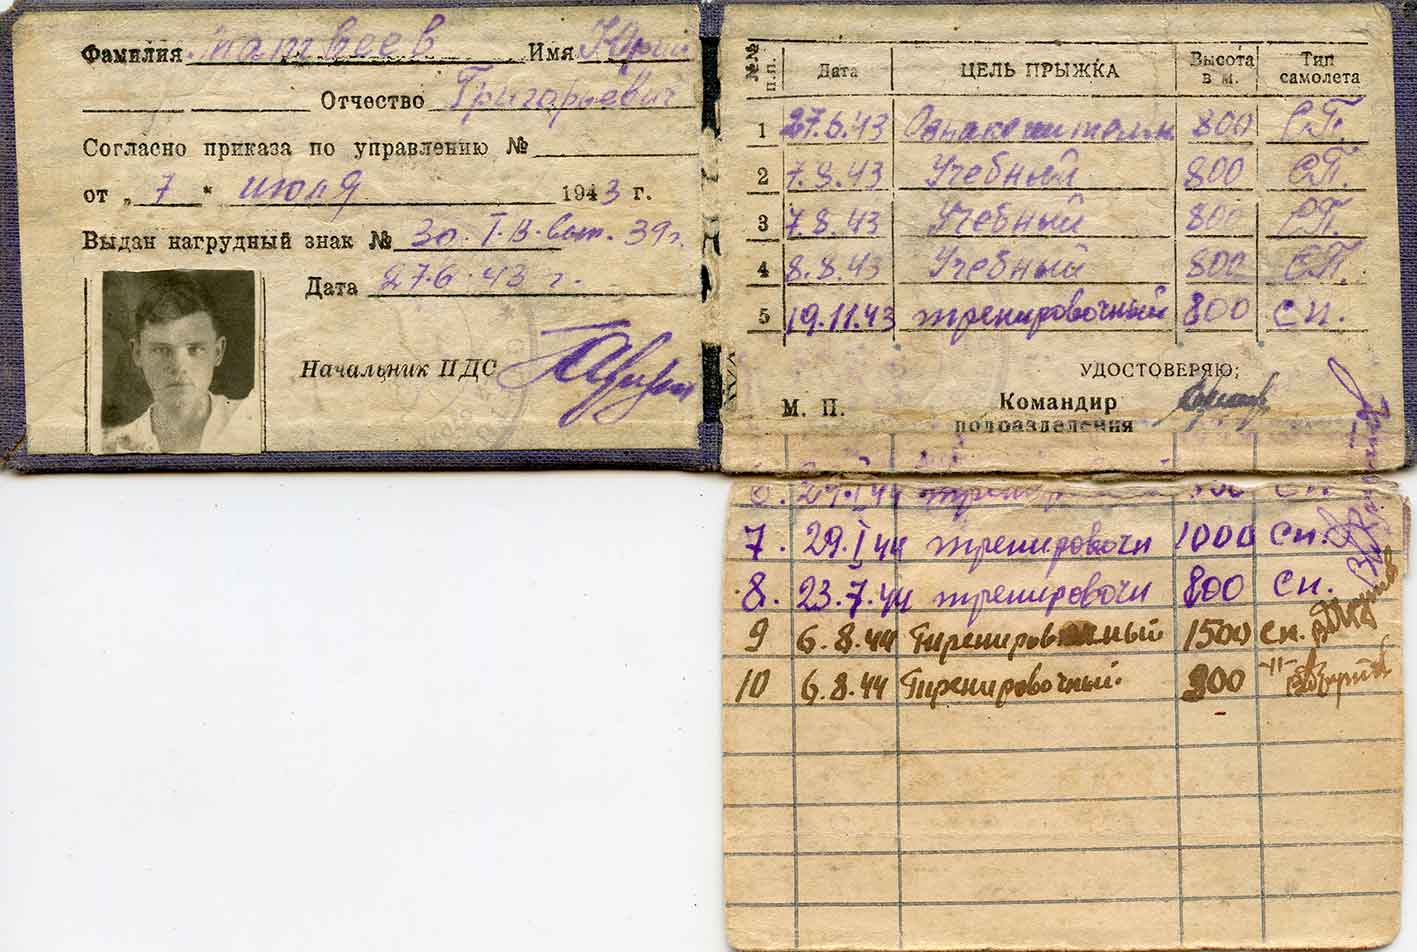 Фамилия Матвеев Имя Юрий
Отчество Григорьевич
Согласно приказа по управлению №
от „ 7 " июля 1943 г.
Выдан нагрудный знак № 30. Т.В. 39г.
Дата 27.6.43 г.
Начальник ПДС
№№ п.п. Дата ЦЕЛЬ ПРЫЖКА Высота в м. Тип самолета
1 27.6.43 Ознакомительн 800 СП.
2 7.8.43 Учебный 800 СП.
3 7.8.43 Учебный 800 СП.
4 8.8.43 Учебный 800 СП.
5 19.11.43 тренировочный 800 сп.
УДОСТОВЕРЯЮ;
М. П. Командир
подразделения
6. 29.I 44 800 сп.
7. 29.I 44 тренировочн 1000 сп.
8. 23.7.44 тренировочн 800 сп.
9 6.8.44 Тренировочный 1500 сп.
10 6.8.44 Тренировочный 900 -"-